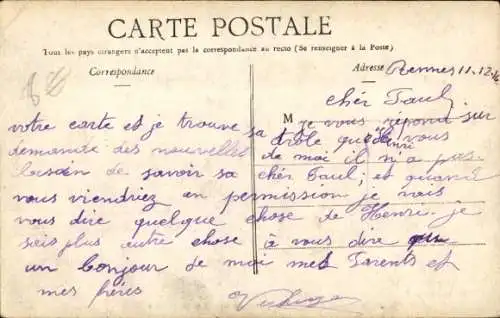 CARTE POSTALE
Tous les pays étrangers n'acceptent pas la correspondance au recto (Se renseigner à la Poste)
Correspondance
Adresse
Rennes 11.12.
chér Paul
M je vous répond sur
votre carte et je trouve sa drôle que Henri vous
demande des nouvelles de moi il n'a pas
besoin de savoir sa chér Paul; et quand
vous viendriez en permission je vais
vous dire quelque chose de Henri. je
seis plus autre chose à vous dire
un bonjour de moi mes Parents et
mes fréres